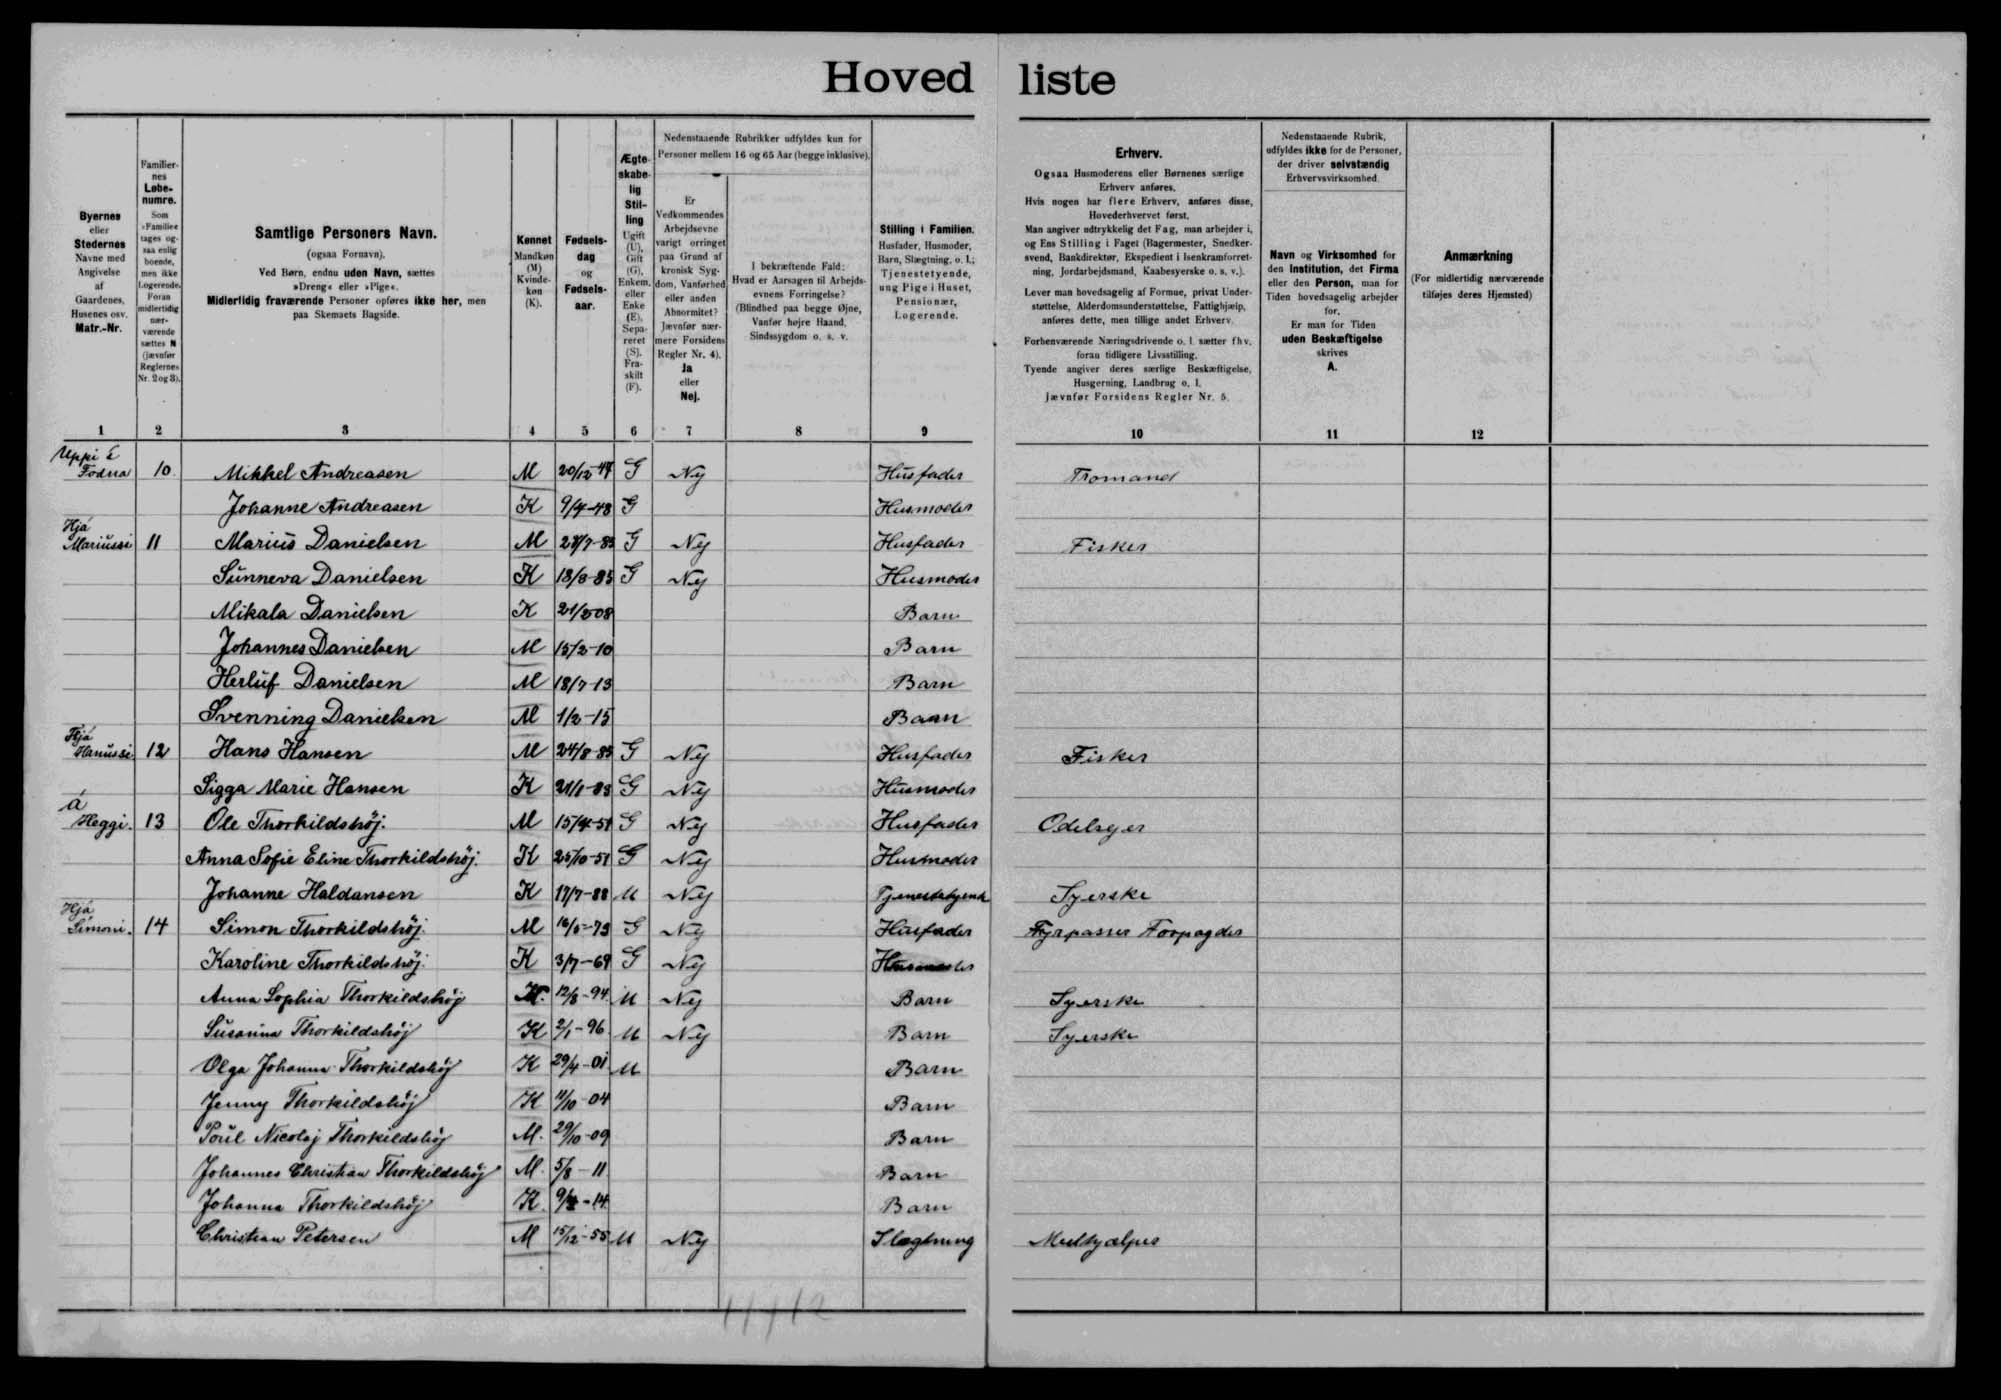 Hovedliste
Byernes eller Stedernes Navne med Angivelse af Gaardenes, Husenes osv. Matr.-Nr.
Familiernes Løbenumre. Som »Familie« tages ogsaa enlig boende, men ikke Logerende. Foran midlertidig nærværende sættes N (jævnfør Reglernes Nr. 2 og 3).
Samtlige Personers Navn.
(ogsaa Fornavn).
Ved Børn, endnu uden Navn, sættes »Dreng« eller »Pige«.
Midlertidig fraværende Personer opføres ikke her, men paa Skemaets Bagside.
Kønnet Mandkøn (M) Kvindekøn (K).
Fødselsdag og Fødselsaar.
Ægteskabelig Stilling Ugift (U), Gift (G), Enkem. eller Enke (E), Separeret (S), Fraskilt (F).
Nedenstaaende Rubrikker udfyldes kun for Personer mellem 16 og 65 Aar (begge inklusive).
Er Vedkommendes Arbejdsevne varigt forringet paa Grund af kronisk Sygdom, Vanførhed eller anden Abnormitet? Jævnfør nærmere Forsidens Regler Nr. 4). Ja eller Nej.
I bekræftende Fald: Hvad er Aarsagen til Arbejdsevnens Forringelse? (Blindhed paa begge Øjne, Vanfør højre Haand, Sindssygdom o. s. v.
Stilling i Familien. Husfader, Husmoder, Barn, Slægtning, o. l.; Tjenestetyende, ung Pige i Huset, Pensionær, Logerende.
Erhverv.
Ogsaa Husmoderens eller Børnenes særlige Erhverv anføres.
Hvis nogen har flere Erhverv, anføres disse, Hovederhvervet først.
Man angiver udtrykkelig det Fag, man arbejder i, og Ens Stilling i Faget (Bagermester, Snedkersvend, Bankdirektør, Ekspedient i Isenkramforretning, Jordarbejdsmand, Kaabesyerske o. s. v.).
Lever man hovedsagelig af Formue, privat Understøttelse, Alderdomsunderstøttelse, Fattighjælp, anføres dette, men tillige andet Erhverv.
Forhenværende Næringsdrivende o. l. sætter fhv. foran tidligere Livsstilling.
Tyende angiver deres særlige Beskæftigelse, Husgerning, Landbrug o. l.
Jævnfør Forsidens Regler Nr. 5.
Nedenstaaende Rubrik, udfyldes ikke for de Personer, der driver selvstændig Erhvervsvirksomhed.
Navn og Virksomhed for den Institution, det Firma eller den Person, man for Tiden hovedsagelig arbejder for.
Er man for Tiden uden Beskæftigelse skrives A.
Anmærkning
(For midlertidig nærværende tilføjes deres Hjemsted)
1 2 3 4 5 6 7 8 9 10 11 12
Uppi á Fodna 10. Mikkel Andreasen M 20/12-47 G Nej Husfader Tromand
Johanne Andreasen K 9/4-48 G Husmoder
Hjá Mariussi 11 Marius Danielsen M 28/7-83 G Nej Husfader Fisker
Sunneva Danielsen K 18/8-85 G Nej Husmoder
Mikala Danielsen K 21/2-08 Barn
Johannes Danielsen M 15/2-10 Barn
Herluf Danielsen M 18/7-13 Barn
Svenning Danielsen M 1/2-15 Barn
Hjá Hanussi 12 Hans Hansen M 24/8-83 G Nej Husfader Fisker
Sigga Marie Hansen K 21/1-83 G Nej Husmoder
á Heggi. 13 Ole Thorkildshöj. M 15/4-51 G Nej Husfader Odelsejer
Anna Sofie Eline Thorkildshöj. K 25/10-51 G Nej Husmoder
Johanne Haldansen K 17/7-88 U Nej Tjenestetyende Syerske
Hjá Símoni. 14 Simon Thorkildshöj. M G Nej Husfader Fyrpasser
Karoline Thorkildshöj. K 3/7-69 G Nej Husmoder
Anna Sophia Thorkildshöj K. 12/8-94 U Nej Barn Syerske
Susanna Thorkildshöj K 2/1-96 U Nej Barn Syerske
Olga Johanna Thorkildshöj K 29/4-01 U Barn
Jenny Thorkildshöj K 11/10-04 Barn
Poul Nicolaj Thorkildshöj M. 29/10-09 Barn
Johannes Christian Thorkildshöj M. 5/8-11 Barn
Johanna Thorkildshöj K. Barn
Christian Petersen M 15/12-55 U Nej Slægtning Medhjælper